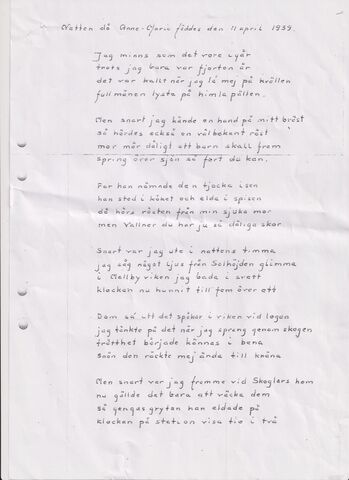 Natten då Anne-Marie föddes den 11 april 1939.
Jag minns som det vore igår
trots jag bara var fjorton år
det var kallt när jag lå mej på kvällen
fullmånen lyste på himlapällen.
Men snart jag kände en hand på mitt bröst
så hördes också en välbekant röst
mor mår dåligt ett barn skall fram
spring över sjön så fort du kan.
Far han nämnde den tjocka isen
han stod i köket och elda i spisen
då hörs rösten från min sjuka mor
men Vallner du har ju så dåliga skor
Snart var jag ute i nattens timma
jag såg något ljus från Solhöjden glimma
i Mellby viken jag bada i svett
klockan nu hunnit till fem över ett
Dom sa att det spökar i viken vid logen
jag tänkte på det när jag sprang genom skogen
trötthet började kännas i bena
snön den räckte mej ända till knäna
Men snart var jag framme vid Skoglars hem
nu gällde det bara att väcka dem
så gengasgrytan han eldade på
klockan på station visa tio i två